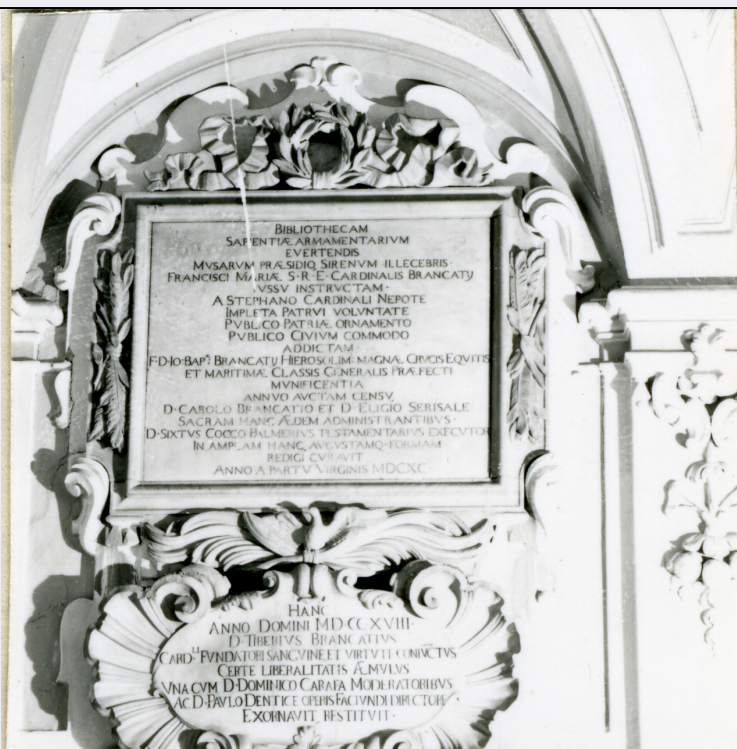 BIBLIOTHECAM
SAPIENTIÆ ARMAMENTARIVM
EVERTENDIS
MVSARVM PRÆSIDIO SIRENVM ILLECEBRIS·
FRANCISCI MARIÆ S·R·E·CARDINALIS BRANCATIJ
IVSSV INSTRVCTAM·
A STEPHANO CARDINALI NEPOTE
IMPLETA PATRVI VOLVNTATE
PVBLICO PATRIÆ ORNAMENTO
PVBLICO CIVIVM COMMODO
ADDICTAM·
F·D·IO·BAP.ᵉ BRANCATIJ HIEROSOLIM: MAGNÆ CRVCIS EQVITIS
ET MARITIMÆ CLASSIS GENERALIS PRÆFECTI
MVNIFICENTIA
ANNVO AVCTAM CENSV
D·CAROLO BRANCATIO ET D·ELIGIO SERISALE
SACRAM HANC ÆDEM ADMINISTRANTIBVS·
D·SIXTVS COCCO PALMERIVS TESTAMENTARIVS EXECVTOR
IN AMPLAM HANC, AVGVSTAMQ·FORMAM
REDIGI CVRAVIT
ANNO A PARTV VIRGINIS MDCXC·
HANC
ANNO DOMINI MDCCXVIII·
D·TIBERIVS BRANCATIVS
CARD·LI FVNDATORI SANGVINE, ET VIRTVTE CONIVCTVS
CERTE LIBERALITATIS ÆMVLVS
VNA CVM D·DOMINICO CARAFA MODERATORIBVS
AC D·PAVLO DENTICE OPERIS FACIVNDI DIRECTORE
EXORNAVIT RESTITVIT·